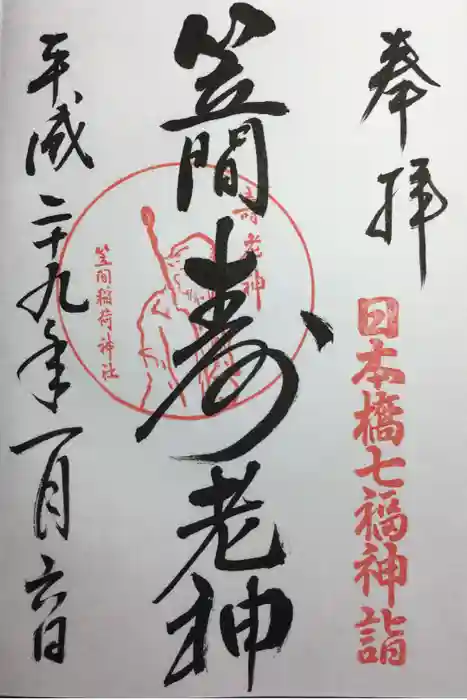 奉拝
日本橋七福神詣
笠間寿老神
寿老神
笠間稲荷神社
平成二十九年一月六日